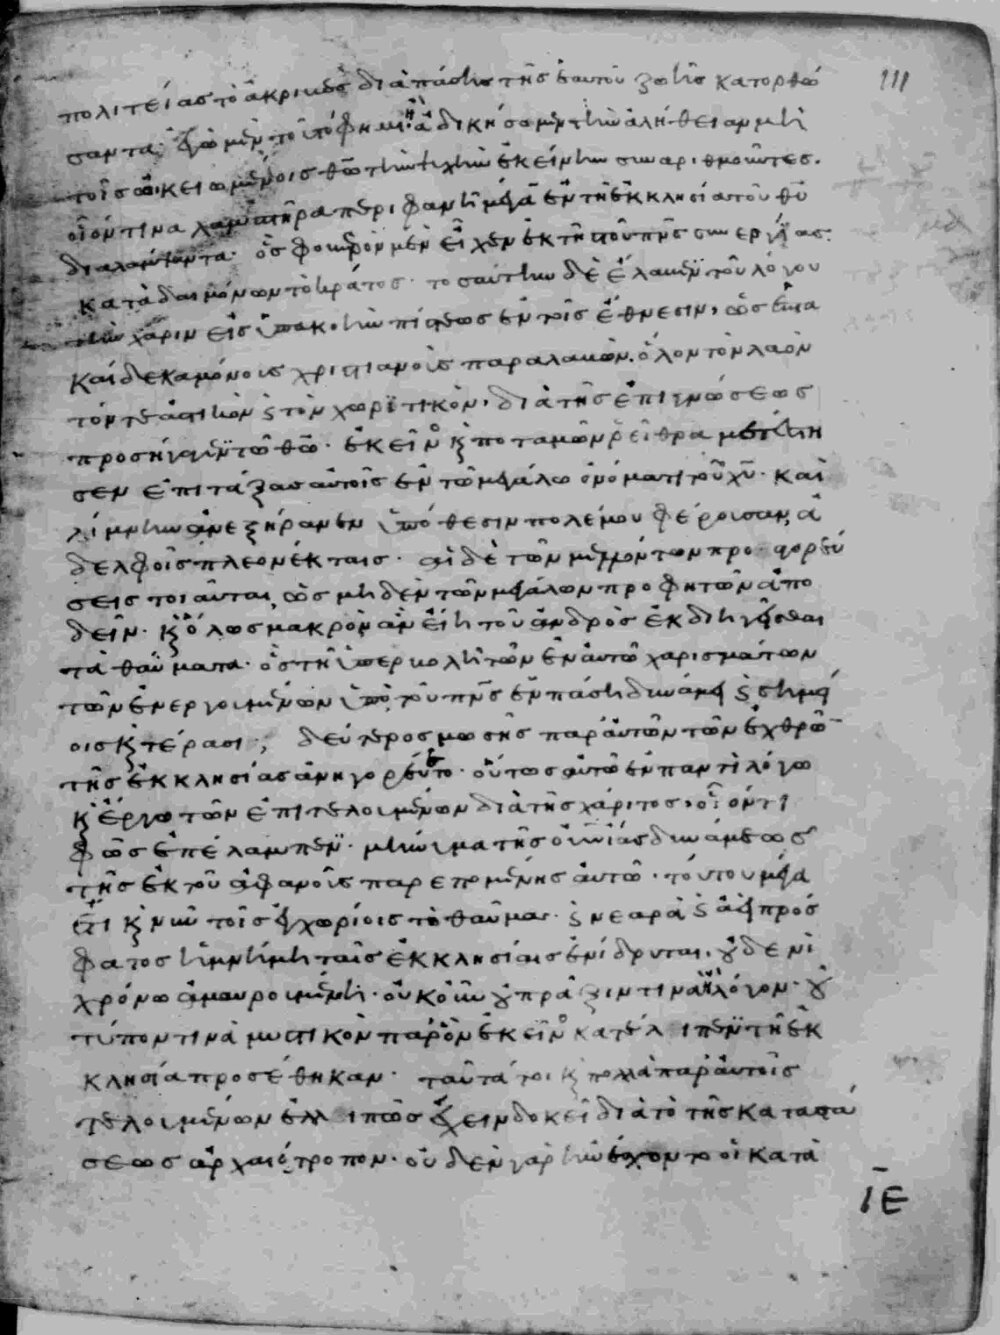 111
πολιτείας τὸ ἀκριβὲς διαπάσης τῆς ἑαυτοῦ ζωῆς κατορθώ
σαντα· μὲν τοῦτό φημι· ἢ ἀδικήσομεν τὴν ἀλήθειαν μὴ
τοῖς ᾠκειωμένοις θῶ τὴν ψυχὴν ἐκείνην συναριθμοῦντες.
οἷόν τινα λαμπτῆρα περιφανῆ μέγα ἐν τῆ ἐκκλησία τοῦ θυ
διαλάμψαντα· ὃς φοβερὸν μὲν εἶχεν ἐκ τῆς τοῦ πνς συνεργίας
κατὰ δαιμόνων τὸ κράτος· τοσαύτην δὲ ἔλαβεν τοῦ λόγου
τὴν χάριν εἰς ὑπακοὴν πίστεως ἐν τοῖς ἔθνεσιν, ὡς ἑπτα
καίδεκα μόνους χριστιανοὺς παραλαβὼν, ὅλον τὸν λαὸν
τόν τε ἀστικὸν καὶ τὸν χωριτικὸν, διὰ τῆς ἐπιγνώσεως
προσήγαγεν τῶ θῶ· ἐκεῖνος καὶ ποταμῶν ῥεῖθρα μετέστη
σεν ἐπιτάξας αὐτοῖς ἐν τῶ μεγάλω ὀνόματι τοῦ χυ· καὶ
λίμνην ἀνεξήρανεν ὑπόθεσιν πολέμου φέρουσαν ἀ
δελφοῖς πλεονέκταις· αἱ δὲ τῶν μελλόντων προαγορεύ
σεις τοιαῦται, ὡς μηδὲν τῶν μεγάλων προφητῶν ἀπο
δεῖν· καὶ ὅλως μακρὸν ἂν εἴη τοῦ ἀνδρὸς ἐκδιηγεῖσθαι
τὰ θαύματα· ὃς τῆ ὑπερβολῆ τῶν ἐν αὐτῶ χαρισμάτων
τῶν ἐνεργουμένων ὑπὸ τοῦ πνς ἐν πάση δυνάμει καὶ σημεί
οις καὶ τέρασι, δεύτερος μωσῆς παρ' αὐτῶν τῶν ἐχθρῶ
τῆς ἐκκλησίας ἀνηγορεύετο· οὕτως αὐτῶ ἐν παντὶ λόγω
καὶ ἔργω τῶν ἐπιτελουμένων διὰ τῆς χάριτος, οἷόν τι
φῶς ἐπέλαμπεν· μήνυμα τῆς οὐνίας δυνάμεως
τῆς ἐκ τοῦ ἀφανοῦς παρεπομένης αὐτῶ· τούτου μέγα
ἔτι καὶ νῦν τοῖς ἐγχωρίοις τὸ θαῦμα· καὶ νεαρὰ καὶ ἀεὶ πρόσ
φατος ἡ μνήμη ταῖς ἐκκλησίαις ἐνίδρυται, οὐδενὶ
χρόνω ἀμαυρουμένη· οὐκοῦν οὐ πρᾶξιν τινα οὐ λόγον· οὐ
τύπον τινὰ μυστικὸν παρ' ὃν ἐκεῖνος κατέλιπεν τῆ ἐκ
κλησία προσέθηκαν· ταῦτά τοι καὶ πολλὰ παρ' αὐτοῖς
τελουμένων ἐλλιπῶς ἔχειν δοκεῖ διὰ τὸ τῆς καταστά
σεως ἀρχαιότροπον· οὐδὲν γὰρ ἠνέσχοντο οἱ κατὰ
ΙΕ